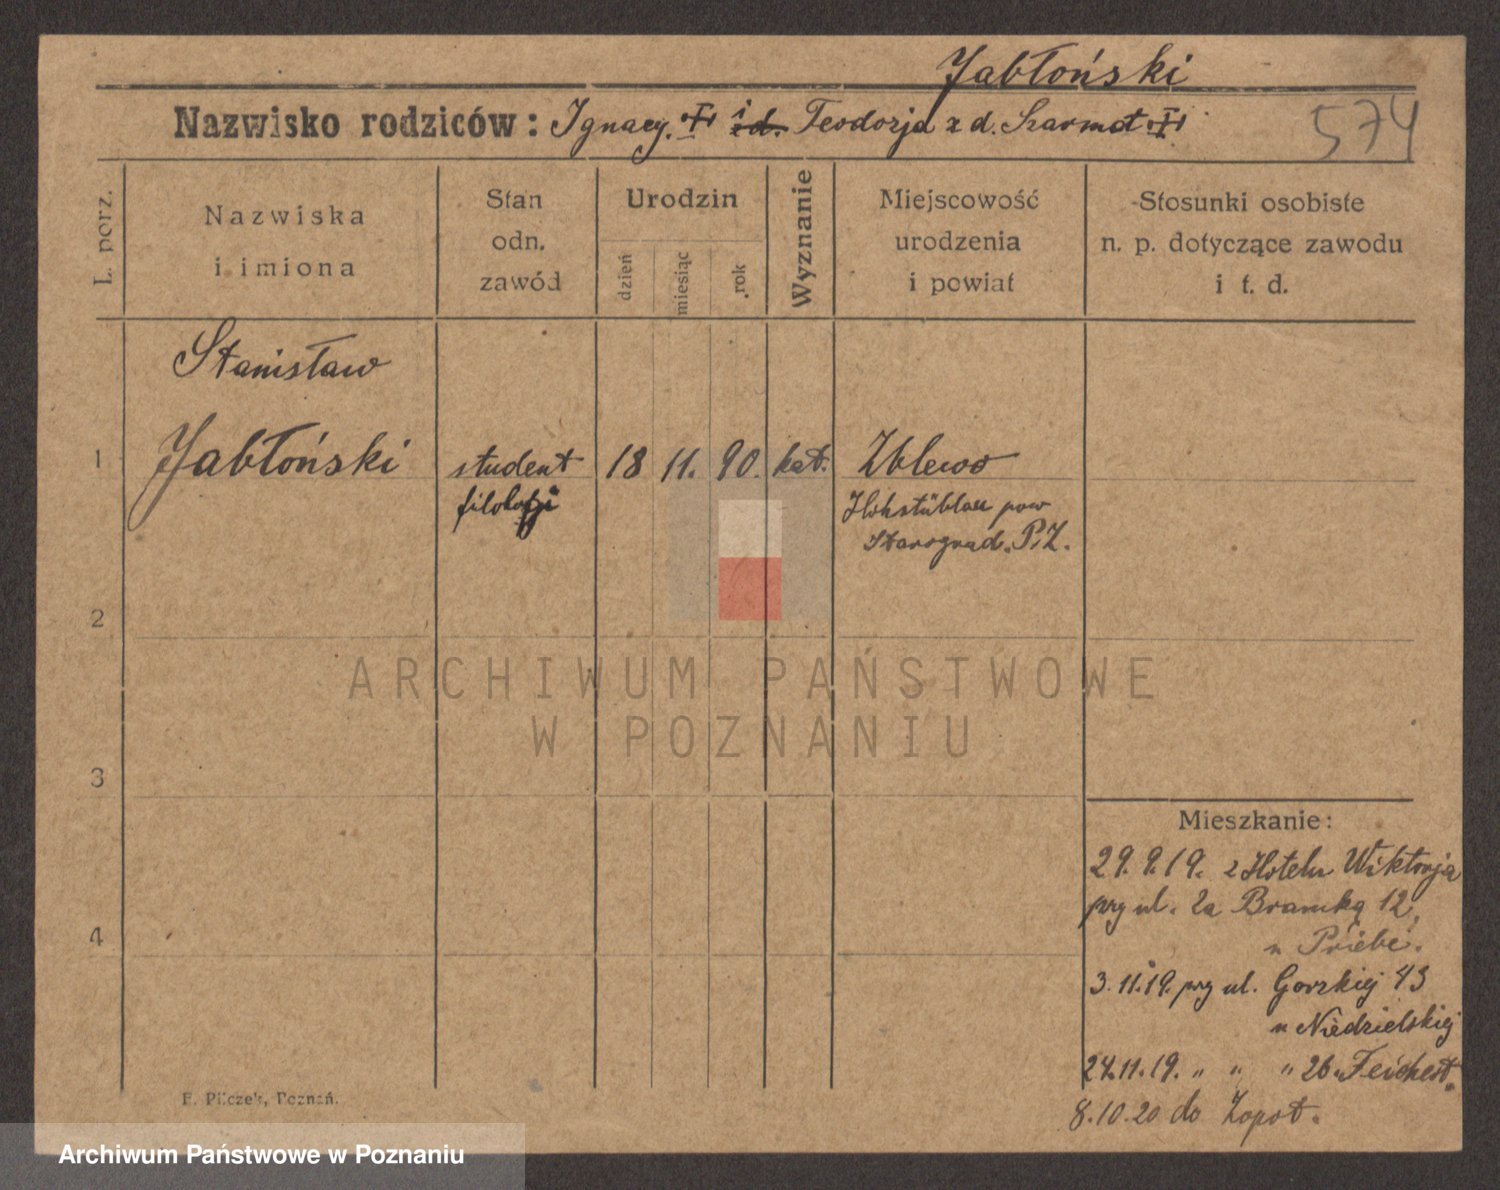 Jabłoński
Nazwisko rodziców: Ignacy. i z d. Teodozja z d. Szarmot
574
L. porz.
Nazwiska
i imiona
Stan
odn.
zawód
Urodzin
dzień
miesiąc
rok
Wyznanie
Miejscowość
urodzenia
i powiat
Stosunki osobiste
n. p. dotyczące zawodu
i t. d.
Stanisław
1 Jabłoński student 18 11. 90. kat. Zblewo
filologji
Hohstüblau pow
Starograd. P.Z.
2
ARCHIWUM PAŃSTWOWE
W POZNANIU
3
Mieszkanie:
29.9.19. z Hotelu Wiktorja
przy ul. Za Bramką 12,
u Priebe.
4
3.11.19. przy ul. Gorzkiej 43
u Niedzielskiej
24.11.19. „ „ „ 26 Feichert.
8.10.20 do Zopot.
F. Pilczek, Poznań.
Archiwum Państwowe w Poznaniu